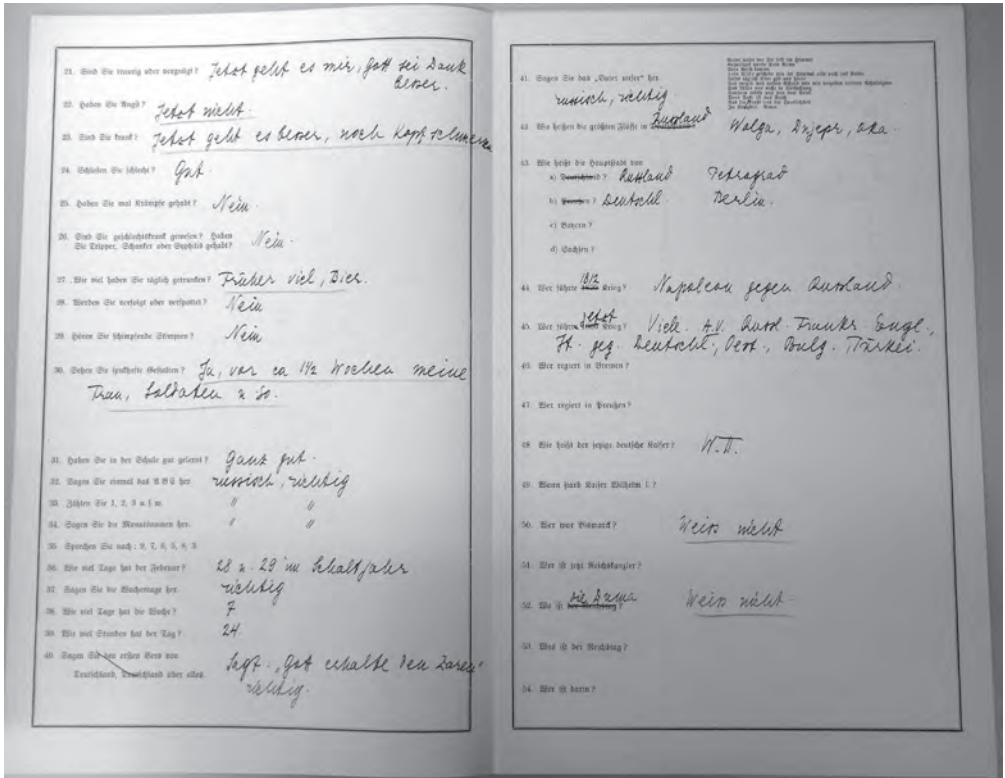 21. Sind Sie traurig oder vergnügt? Jetzt geht es mir, Gott sei Dank
besser.
22. Haben Sie Angst? Jetzt nicht.
23. Sind Sie krank? Jetzt geht es besser, noch Kopfschmerzen
24. Schlafen Sie schlecht? Gut.
25. Haben Sie mal Krämpfe gehabt? Nein.
26. Sind Sie geschlechtskrank gewesen? Haben
Sie Tripper, Schanker oder Syphilis gehabt? Nein.
27. Wie viel haben Sie täglich getrunken? Früher viel, Bier.
28. Werden Sie verfolgt oder verspottet? Nein
29. Hören Sie schimpfende Stimmen? Nein
30. Sehen Sie spukhafte Gestalten? Ja, vor ca 1½ Wochen meine
Frau, Soldaten u so.
31. Haben Sie in der Schule gut gelernt? Ganz gut.
32. Sagen Sie einmal das ABC her. russisch, richtig
33. Zählen Sie 1, 2, 3 u. s. w. " "
34. Sagen Sie die Monatsnamen her. " "
35. Sprechen Sie nach: 9, 7, 6, 5, 8, 3
36. Wie viel Tage hat der Februar? 28 u. 29 im Schaltjahr
37. Sagen Sie die Wochentage her. richtig
38. Wie viel Tage hat die Woche? 7
39. Wie viel Stunden hat der Tag? 24
40. Sagen Sie den ersten Vers von
Deutschland, Deutschland über alles. Sagt. "Gott erhalte den Zaren"
richtig.
41. Sagen Sie das „Vater unser" her.
russisch, richtig
42. Wie heißen die größten Flüsse in Deutschland Russland Wolga, Dnjepr, Oka.
43. Wie heißt die Hauptstadt von
a) Deutschland? Russland Petrograd
b) Preußen? Deutschl. Berlin.
c) Bayern?
d) Sachsen?
44. Wer führte 1812 Krieg? Napoleon gegen Russland.
45. Wer führte jetzt Krieg? Viele. A.V. Russl. Frankr. Engl.,
It. geg. Deutschl., Oest., Bulg. Türkei.
46. Wer regiert in Bremen?
47. Wer regiert in Preußen?
48. Wie heißt der jetzige deutsche Kaiser? W. II.
49. Wann starb Kaiser Wilhelm I.?
50. Wer war Bismarck? Weiss nicht
51. Wer ist jetzt Reichskanzler?
52. Wo ist der Reichstag? die Duma Weiss nicht
53. Was ist der Reichstag?
54. Wer ist darin?